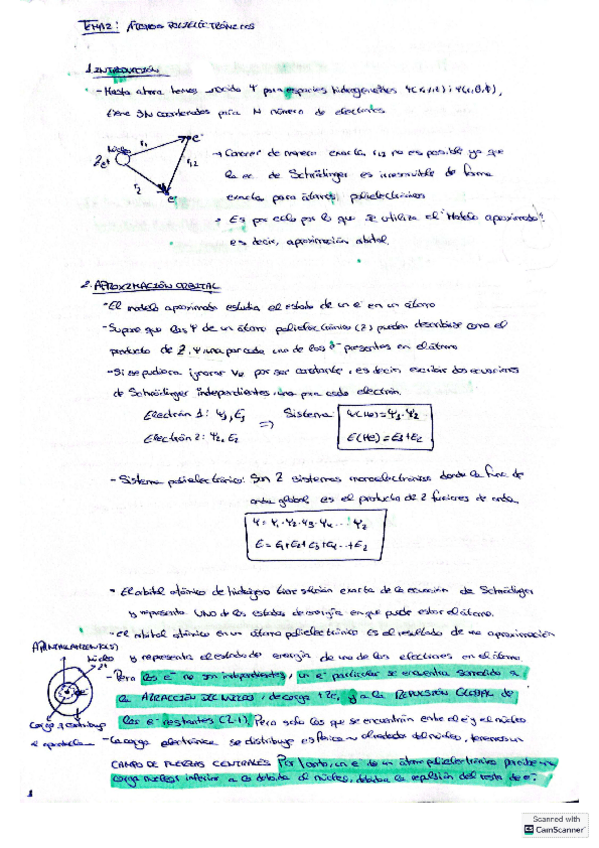 TEMA 2: ÁTOMOS POLIELECTRÓNICOS
1. INTRODUCCIÓN
- Hasta ahora hemos Ψ para especies hidrogenoides
tiene 3N coordenadas para N número de electrones
núcleo r1 e-
Ze+ r12
r2 e-
→ Conocer de manera exacta, r12 no es posible ya que
la ec. de Schrödinger es irresoluble de forma
exacta para átomos polielectrónicos
→ Es por ello por lo que se utiliza el "Modelo aproximado",
es decir, aproximación orbital.
2. APROXIMACIÓN ORBITAL
- El modelo aproximado estudia el estado de un e- en un átomo
- Supone que las Ψ de un átomo polielectrónico (Z) pueden describirse como el
producto de Z Ψ, una por cada uno de los e- presentes en el átomo
- Si se pudiera ignorar por ser constante, es decir, escribir dos ecuaciones
de Schrödinger independientes, una para cada electrón.
Electrón 1: Ψ1, E1 ⇒ Sistema: Ψ(He) = Ψ1·Ψ2
Electrón 2: Ψ2, E2 E(He) = E1+E2
- Sistema polielectrónico: Son Z sistemas monoelectrónicos donde la func. de
onda global es el producto de Z funciones de onda.
Ψ = Ψ1·Ψ2·Ψ3·Ψ4...·Ψz
E = E1+E2+E3+E4...+Ez
- El orbital atómico de hidrógeno tiene solución exacta de la ecuación de Schrödinger
y representa uno de los estados de energía en que puede estar el átomo.
- El orbital atómico en un átomo polielectrónico es el resultado de una aproximación
y representa el estado de energía de uno de los electrones en el átomo.
núcleo
- Pero los e- no son independientes, un e- particular se encuentra sometido a
la ATRACCIÓN DEL NÚCLEO, de carga +Ze, y a la REPULSIÓN GLOBAL de
los e- restantes (Z-1). Pero solo los que se encuentran entre el e- y el núcleo
- La carga electrónica se distribuye esférica alrededor del núcleo, tenemos un
CAMPO DE FUERZAS CENTRALES. Por tanto, un e- de un átomo polielectrónico percibe una
carga nuclear inferior a la debida al núcleo, debida la repulsión del resto de e-.
1
Scanned with
CamScanner